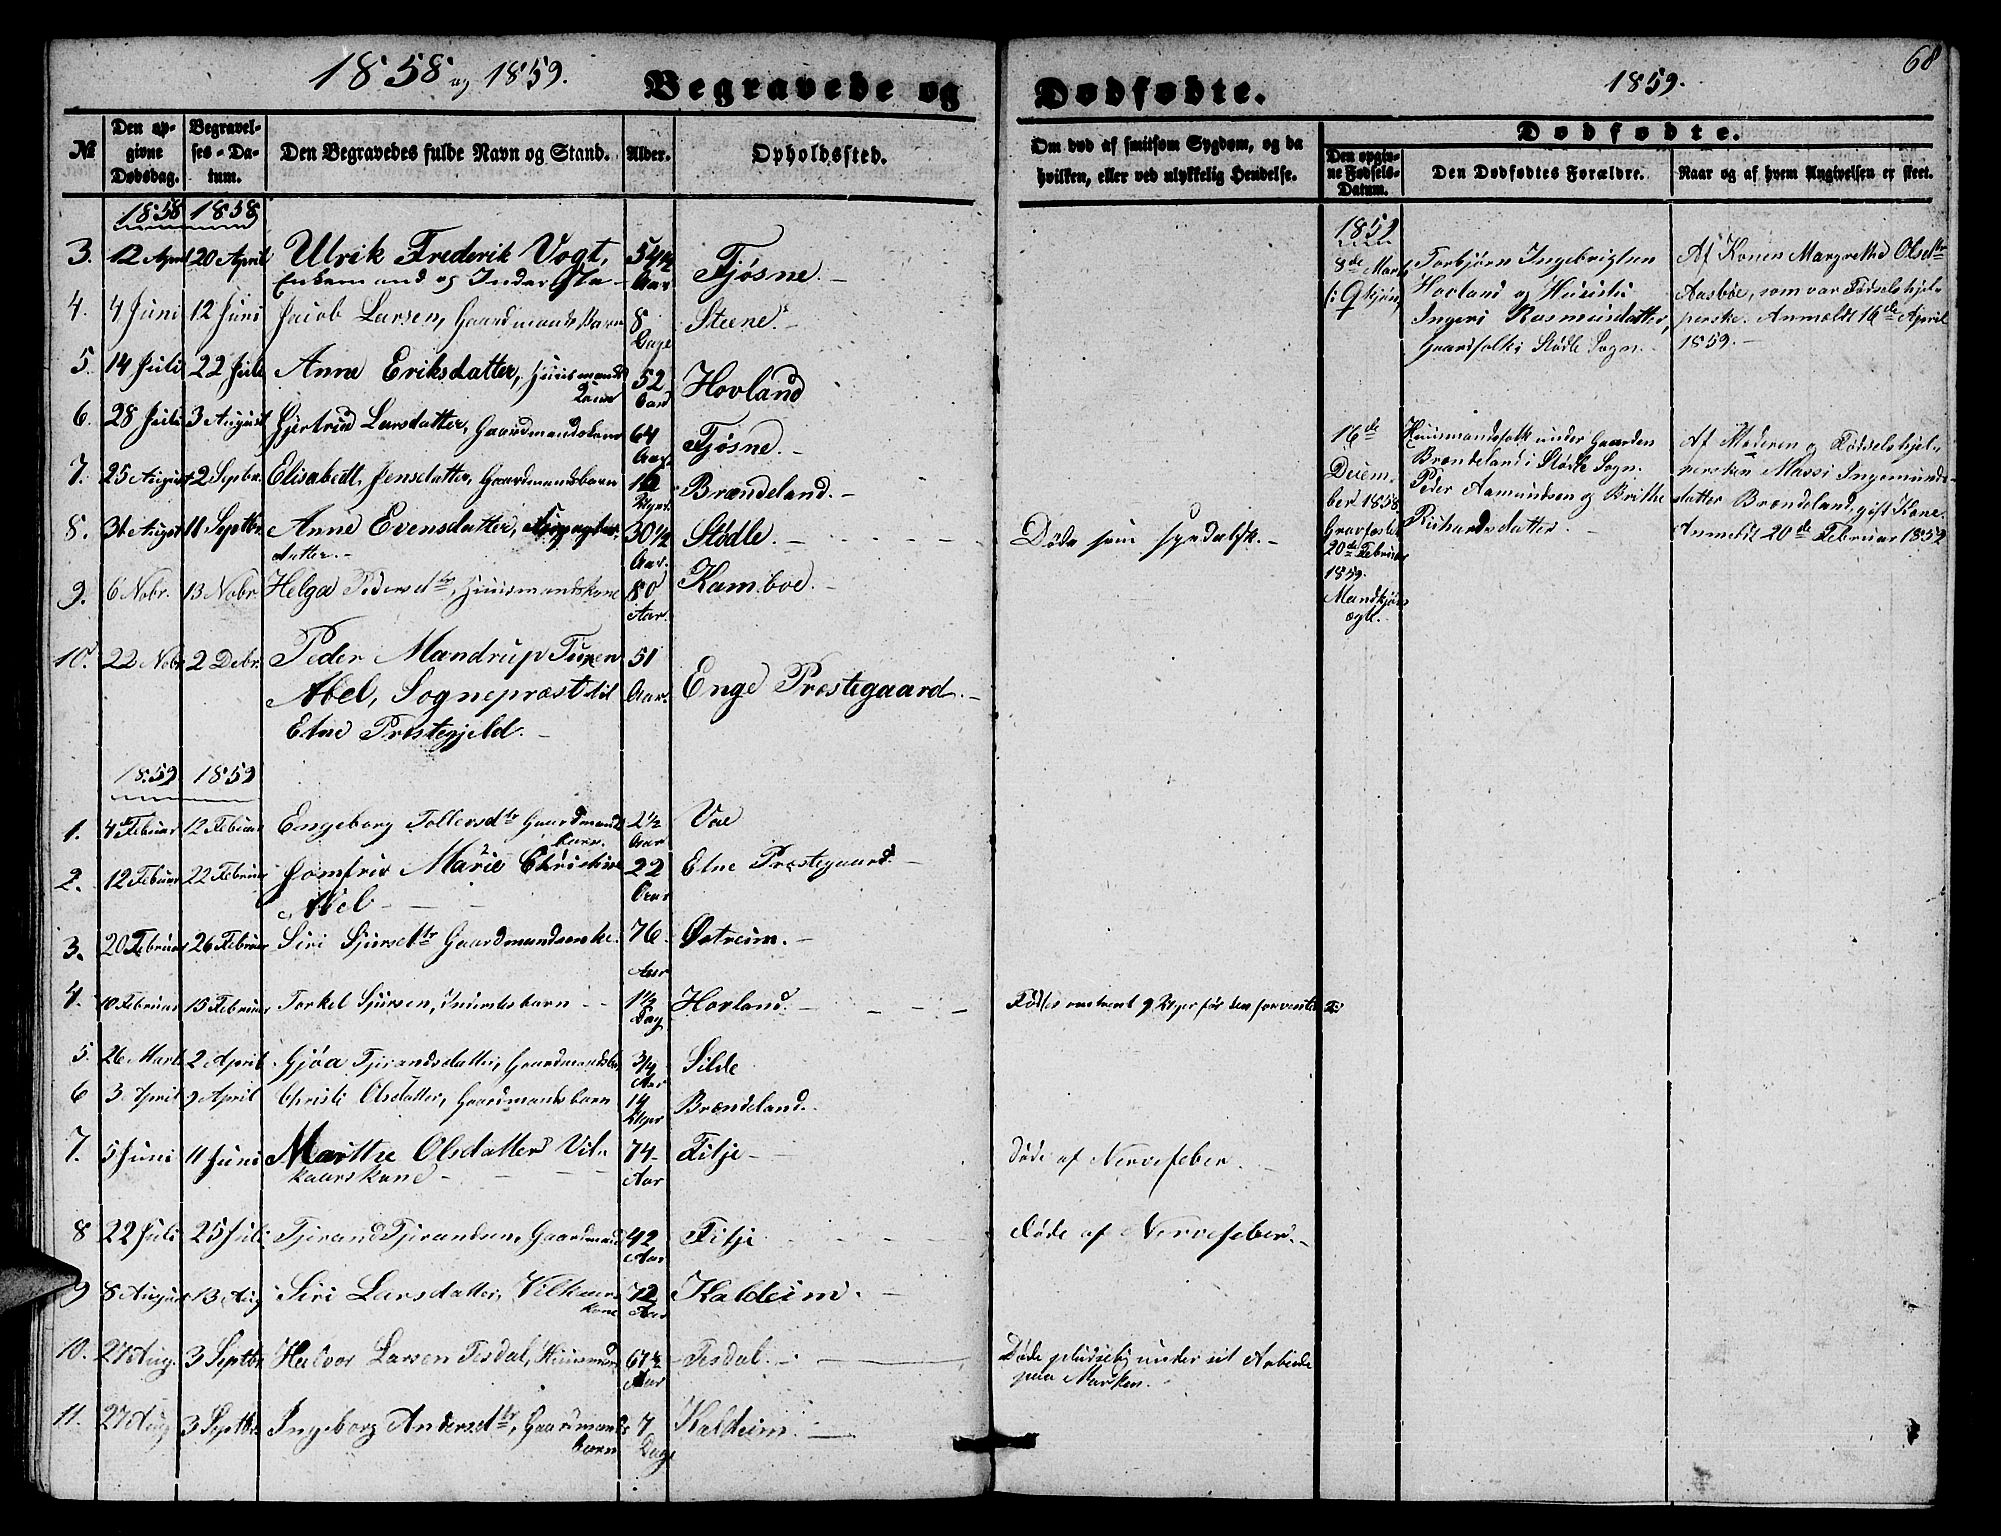 1858 og 1859.
Begravede og
Dødfødte.
1859.
68
№
Den opgivne Dødsdag.
Begravelses-Datum.
Den Begravedes fulde Navn og Stand.
Alder.
Opholdssted.
Om død af smitsom Sygdom, og da hvilken, eller ved ulykkelig Hendelse.
Dødfødte.
Den opgivne Fødsels-Datum.
Den Dødfødtes Forældre.
Naar og af hvem Angivelsen er skeet.
1858 1858
3. 12 April 20 April Ulrik Frederik Vogt, 54½ Tjøsne.
Enkemand og Inderste Aar
4. 4 Juni 12 Juni Jacob Larsen, Gaardmandsbarn 8 Steene.
Dage
5. 14 Juli 22 Juli Anne Eriksdatter, Huusmands 52 Hovland
Aar
6. 28 Juli 3 August Gjertrud Larsdatter, Gaardmandskone 64 Tjøsne.
Aar
7. 25 August 2 Septbr. Elisabeth Jensdatter, Gaardmandsbarn 12 Brændeland.
Uger
8. 31 August 11 Septbr. Anne Evensdatter, 30½ Stødle. Døde som spedalsk.
datter. Aar.
9. 6 Nobr. 13 Nobr. Helga Pedersdtr, Huusmandskone 80 Kamboe.
Aar.
10. 22 Nobr 2 Debr. Peder Mandrup Tuxen 51
Abel, Sognepræst til Aar. Enge Præstegaard.
Etne Præstegjeld.
1859 1859
1. 4de Februar 12 Februar Engeborg Tollersdtr Gaardmands 2½ Vae
barn. Aar
2. 12 Februar 22 Februar Jomfru Marie Christine 22 Etne Præstegaard.
Abel Aar
3. 20 Februar 26 Februar Siri Sjursdtr Gaardmandsenke. 76 Østreim.
Aar
4. 10 Februar 15 Februar Torkel Sjursen, Inderstsbarn 1½ Hovland. Fødtes omtrent 9 Uger før den forventede Tid
Dag
5. 26 Marts 2 April Gjøa Tjerandsdatter, Gaardmandsbn 3/4 Silde
Aar
6 3 April 9 April Christi Olsdatter, Gaardmandsbarn 14 Brændeland.
Uger
7. 5 Juni 11 Juni Marthe Olsdatter Vil- 74 Fitje Døde af Nervefeber.
kaarskone Aar
8 22 Juli 25 Juli Tjerand Tjerandsen, Gaardmand 42 Fitje Døde af Nervefeber.
Aar
9 8 August 13 Aug Siri Larsdatter, Vilkaars 72 Kaldeim.
kone Aar
10. 27 Aug. 3 Septbr Halvor Larsen Tesdal, Huusmand 67½ Tesdal. Døde pludselig under sit Arbeide
Aar paa Marken.
11. 27 Aug 3 Septbr. Ingeborg Andersdtr, Gaardmands 7 Kaldeim.
barn Dage
1859
8de Marts
Torbjørn Ingebrigtsen
Hovland og Hustru
Ingeri Rasmusdatter,
Gaardfolk i Stødle Sogn.
Af Konen Margrethe Olsdtr
Aasbøe, som var Fødselshjel-
perske. Anmeldt 16de April
1859.
16de
Decem-
ber 1858,
20de Februar
1859.
Mandkjøn
ægte.
Huusmandsfolk under Gaarden
Brændeland i Stødle Sogn.
Peder Aamundsen og Brithe
Richardsdatter
Af Moderen og Fødselshjel-
persken Massi Ingemunds-
datter Brændeland, gift Kone.
Anmeldt 20de Februar 1859